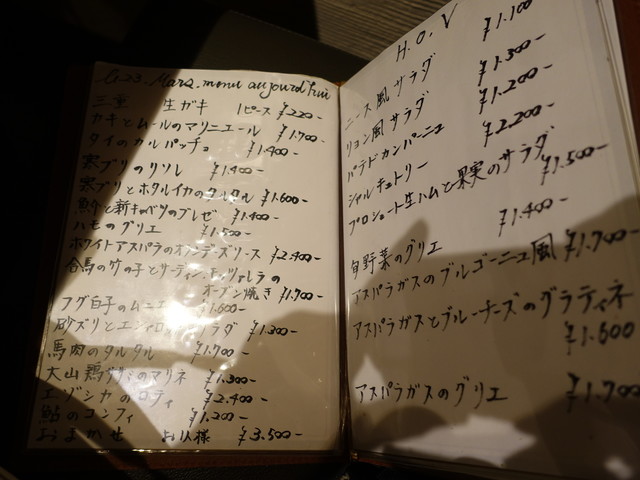 Mars. menu aujourd'hui
三重 生ガキ 1ピース ¥220-
カキとムールのマリニエール ¥1.700-
タイのカルパッチョ ¥1.400-
寒ブリのリソレ ¥1.400-
寒ブリとホタルイカのタルタル ¥1.600-
と新キャベツのブレゼ ¥1.400-
ハモのグリエ ¥1.500-
ホワイトアスパラのオランデーズソース ¥2.400-
合馬の竹の子とサーディン、モッツァレラの
オーブン焼き ¥1.700-
フグ白子のムニエ ¥1.600-
砂ズリと サラダ ¥1.300-
馬肉のタルタル ¥1.700-
大山鶏ササミのマリネ ¥1.300-
エゾシカのロティ ¥2.400-
鮎のコンフィ ¥1.200-
おまかせ お1人様 ¥3.500-
H.O.V
¥1.100
ニース風サラダ ¥1.300-
リヨン風サラダ ¥1.200-
パテドカンパーニュ ¥2.200-
シャルキュトリー
プロシュート生ハムと果実のサラダ ¥1.500-
¥1.400-
旬野菜のグリエ
アスパラガスのブルゴーニュ風 ¥1.700-
アスパラガスとブルーチーズのグラティネ
¥1.600
アスパラガスのグリエ ¥1.700